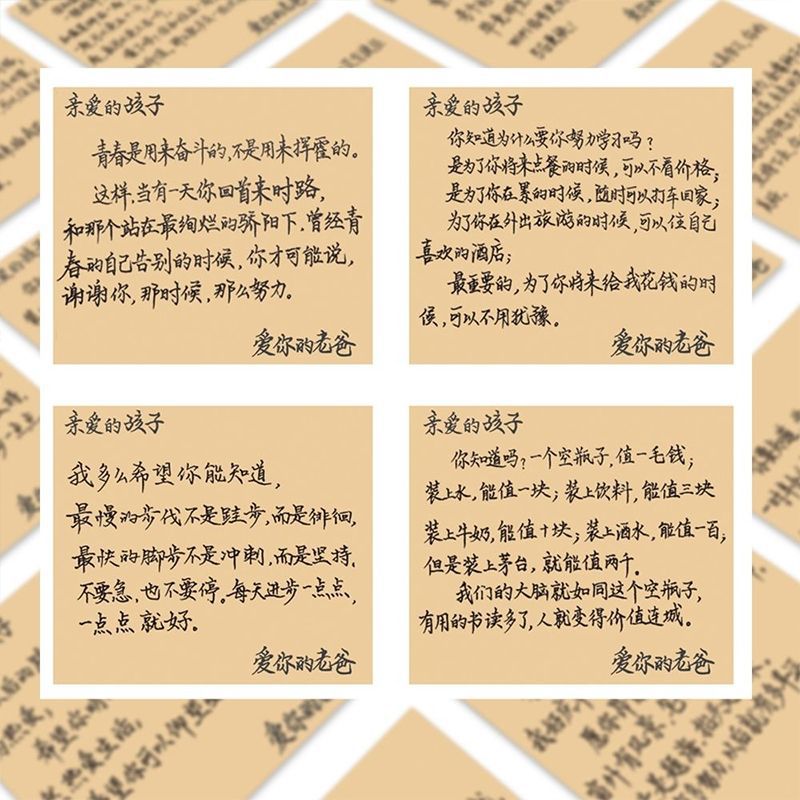 亲爱的孩子
青春是用来奋斗的,不是用来挥霍的。
这样,当有一天你回首来时路,
和那个站在最绚烂的骄阳下,曾经青
春的自己告别的时候,你才可能说,
谢谢你,那时候,那么努力。
爱你的老爸
亲爱的孩子
你知道为什么要你努力学习吗?
是为了你将来点餐的时候,可以不看价格;
是为了你在累的时候,随时可以打车回家;
为了你在外出旅游的时候,可以住自己
喜欢的酒店;
最重要的,为了你将来给我花钱的时
候,可以不用犹豫。
爱你的老爸
亲爱的孩子
我多么希望你能知道,
最慢的步伐不是跬步,而是徘徊,
最快的脚步不是冲刺,而是坚持。
不要急,也不要停。每天进步一点点,
一点点就好。
爱你的老爸
亲爱的孩子
你知道吗?一个空瓶子,值一毛钱;
装上水,能值一块;装上饮料,能值三块
装上牛奶,能值十块;装上酒水,能值一百;
但是装上茅台,就能值两千。
我们的大脑就如同这个空瓶子,
有用的书读多了,人就变得价值连城。
爱你的老爸